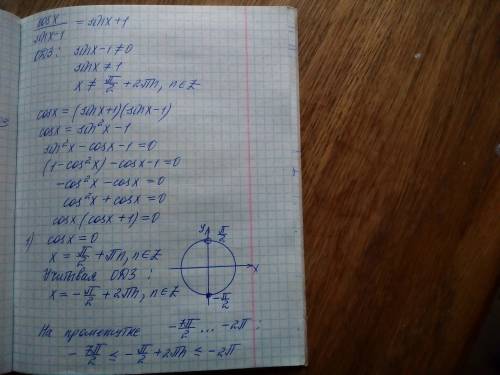 cosx/(sinx-1) = sinx+1
ОДЗ: sinx-1≠0
sinx≠1
x ≠ π/2 + 2πn, n∈Z
cosx = (sinx+1)(sinx-1)
cosx = sin²x-1
sin²x - cosx -1 = 0
(1-cos²x) - cosx-1=0
-cos²x - cosx = 0
cos²x + cosx = 0
cosx(cosx+1)=0
1) cosx=0
x = π/2 + πn, n∈Z
Учитывая ОДЗ:
x = -π/2 + 2πn, n∈Z
y π/2
x
-π/2
На промежутке -7π/2 ... -2π:
-7π/2 ≤ -π/2 + 2πn ≤ -2π